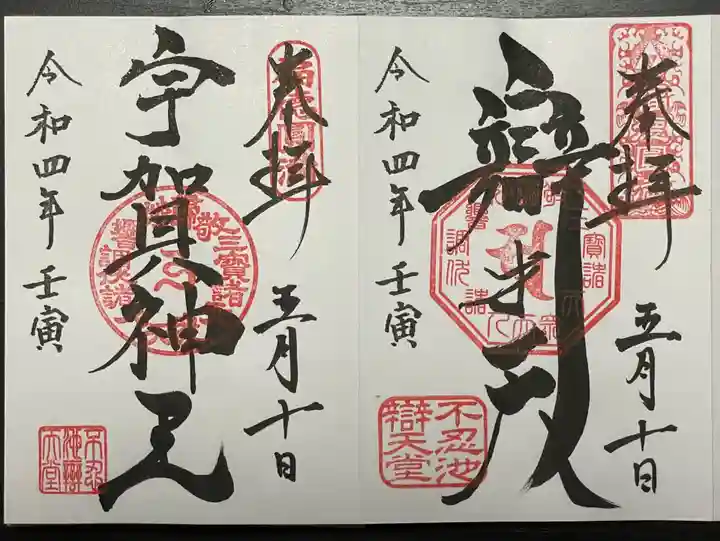 奉拝
五月十日
辯才天
不忍池
辯天堂
令和四年 壬寅
奉拝
五月十日
宇賀神王
令和四年 壬寅